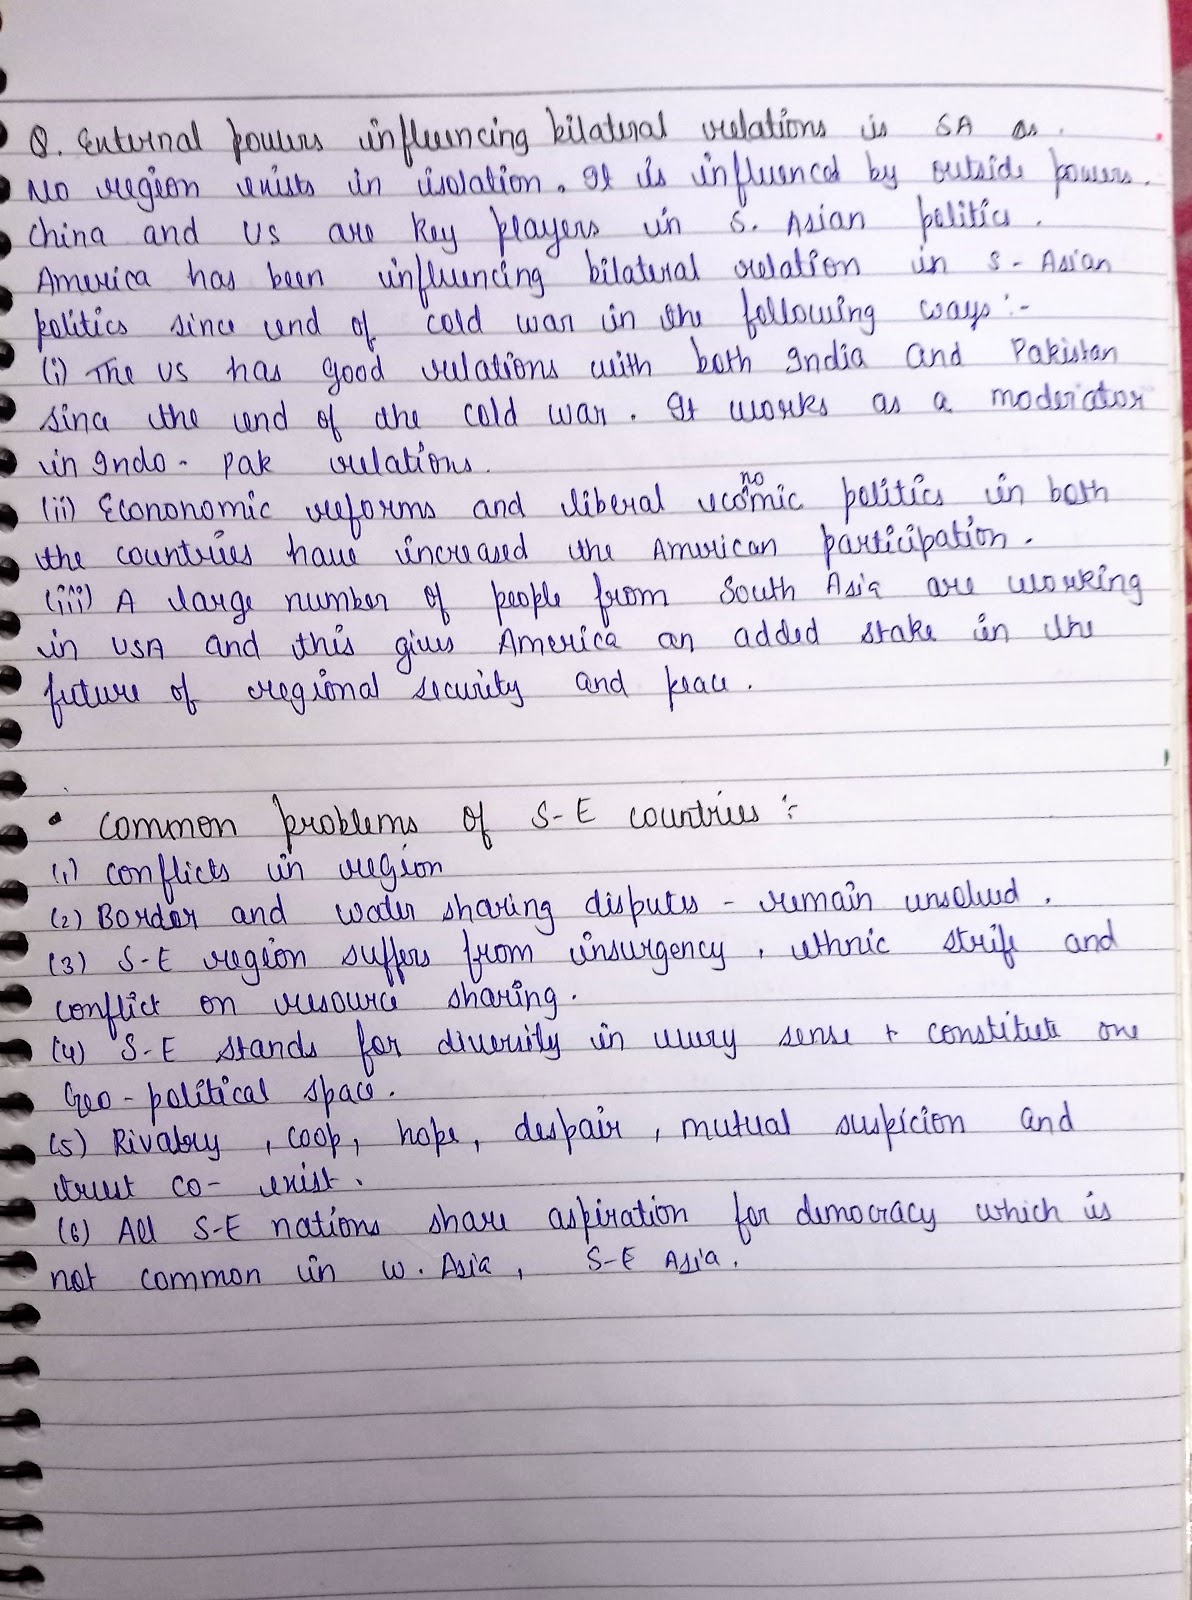 Q. External powers influencing bilateral relations is SA as.
No region exists in isolation. It is influenced by outside powers.
China and US are key players in S. Asian politics.
America has been influencing bilateral relation in S-Asian
politics since end of cold war in the following ways :-
(i) The US has good relations with both India and Pakistan
since the end of the cold war. It works as a moderiator
in Indo-Pak relations.
(ii) Econonomic reforms and liberal economic politics in both
the countries have increased the American participation.
(iii) A large number of people from South Asia are working
in USA and this gives America an added stake in the
future of regional security and peace.
• Common problems of S-E countries :-
(1) conflicts in region
(2) Border and water sharing disputes - remain unsolved.
(3) S-E region suffers from insurgency, ethnic strife and
conflict on resource sharing.
(4) S-E stands for diversity in every sense + constitute one
Geo-political space.
(5) Rivalry, coop, hope, despair, mutual suspicion and
trust co-exist.
(6) All S-E nations share aspiration for democracy which is
not common in W. Asia, S-E Asia.